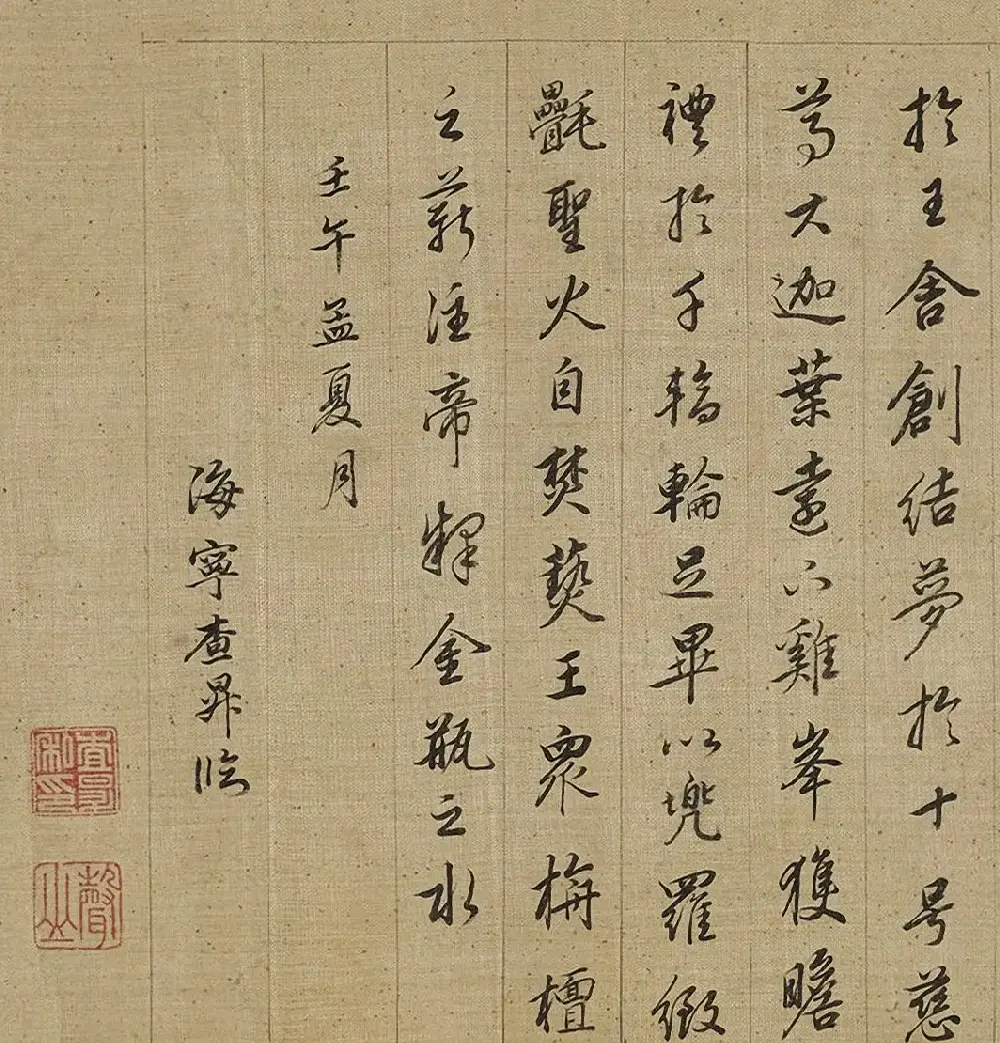 於王舍創結夢於十号慈
尊大迦葉遠六雞峯獲瞻
禮於千輪輪足畢以兜羅緻
氎聖火自焚爇王眾栴檀
之薪注帝釋金瓶之水
壬午孟夏月
海寧查昇臨
查昇私印
聲山